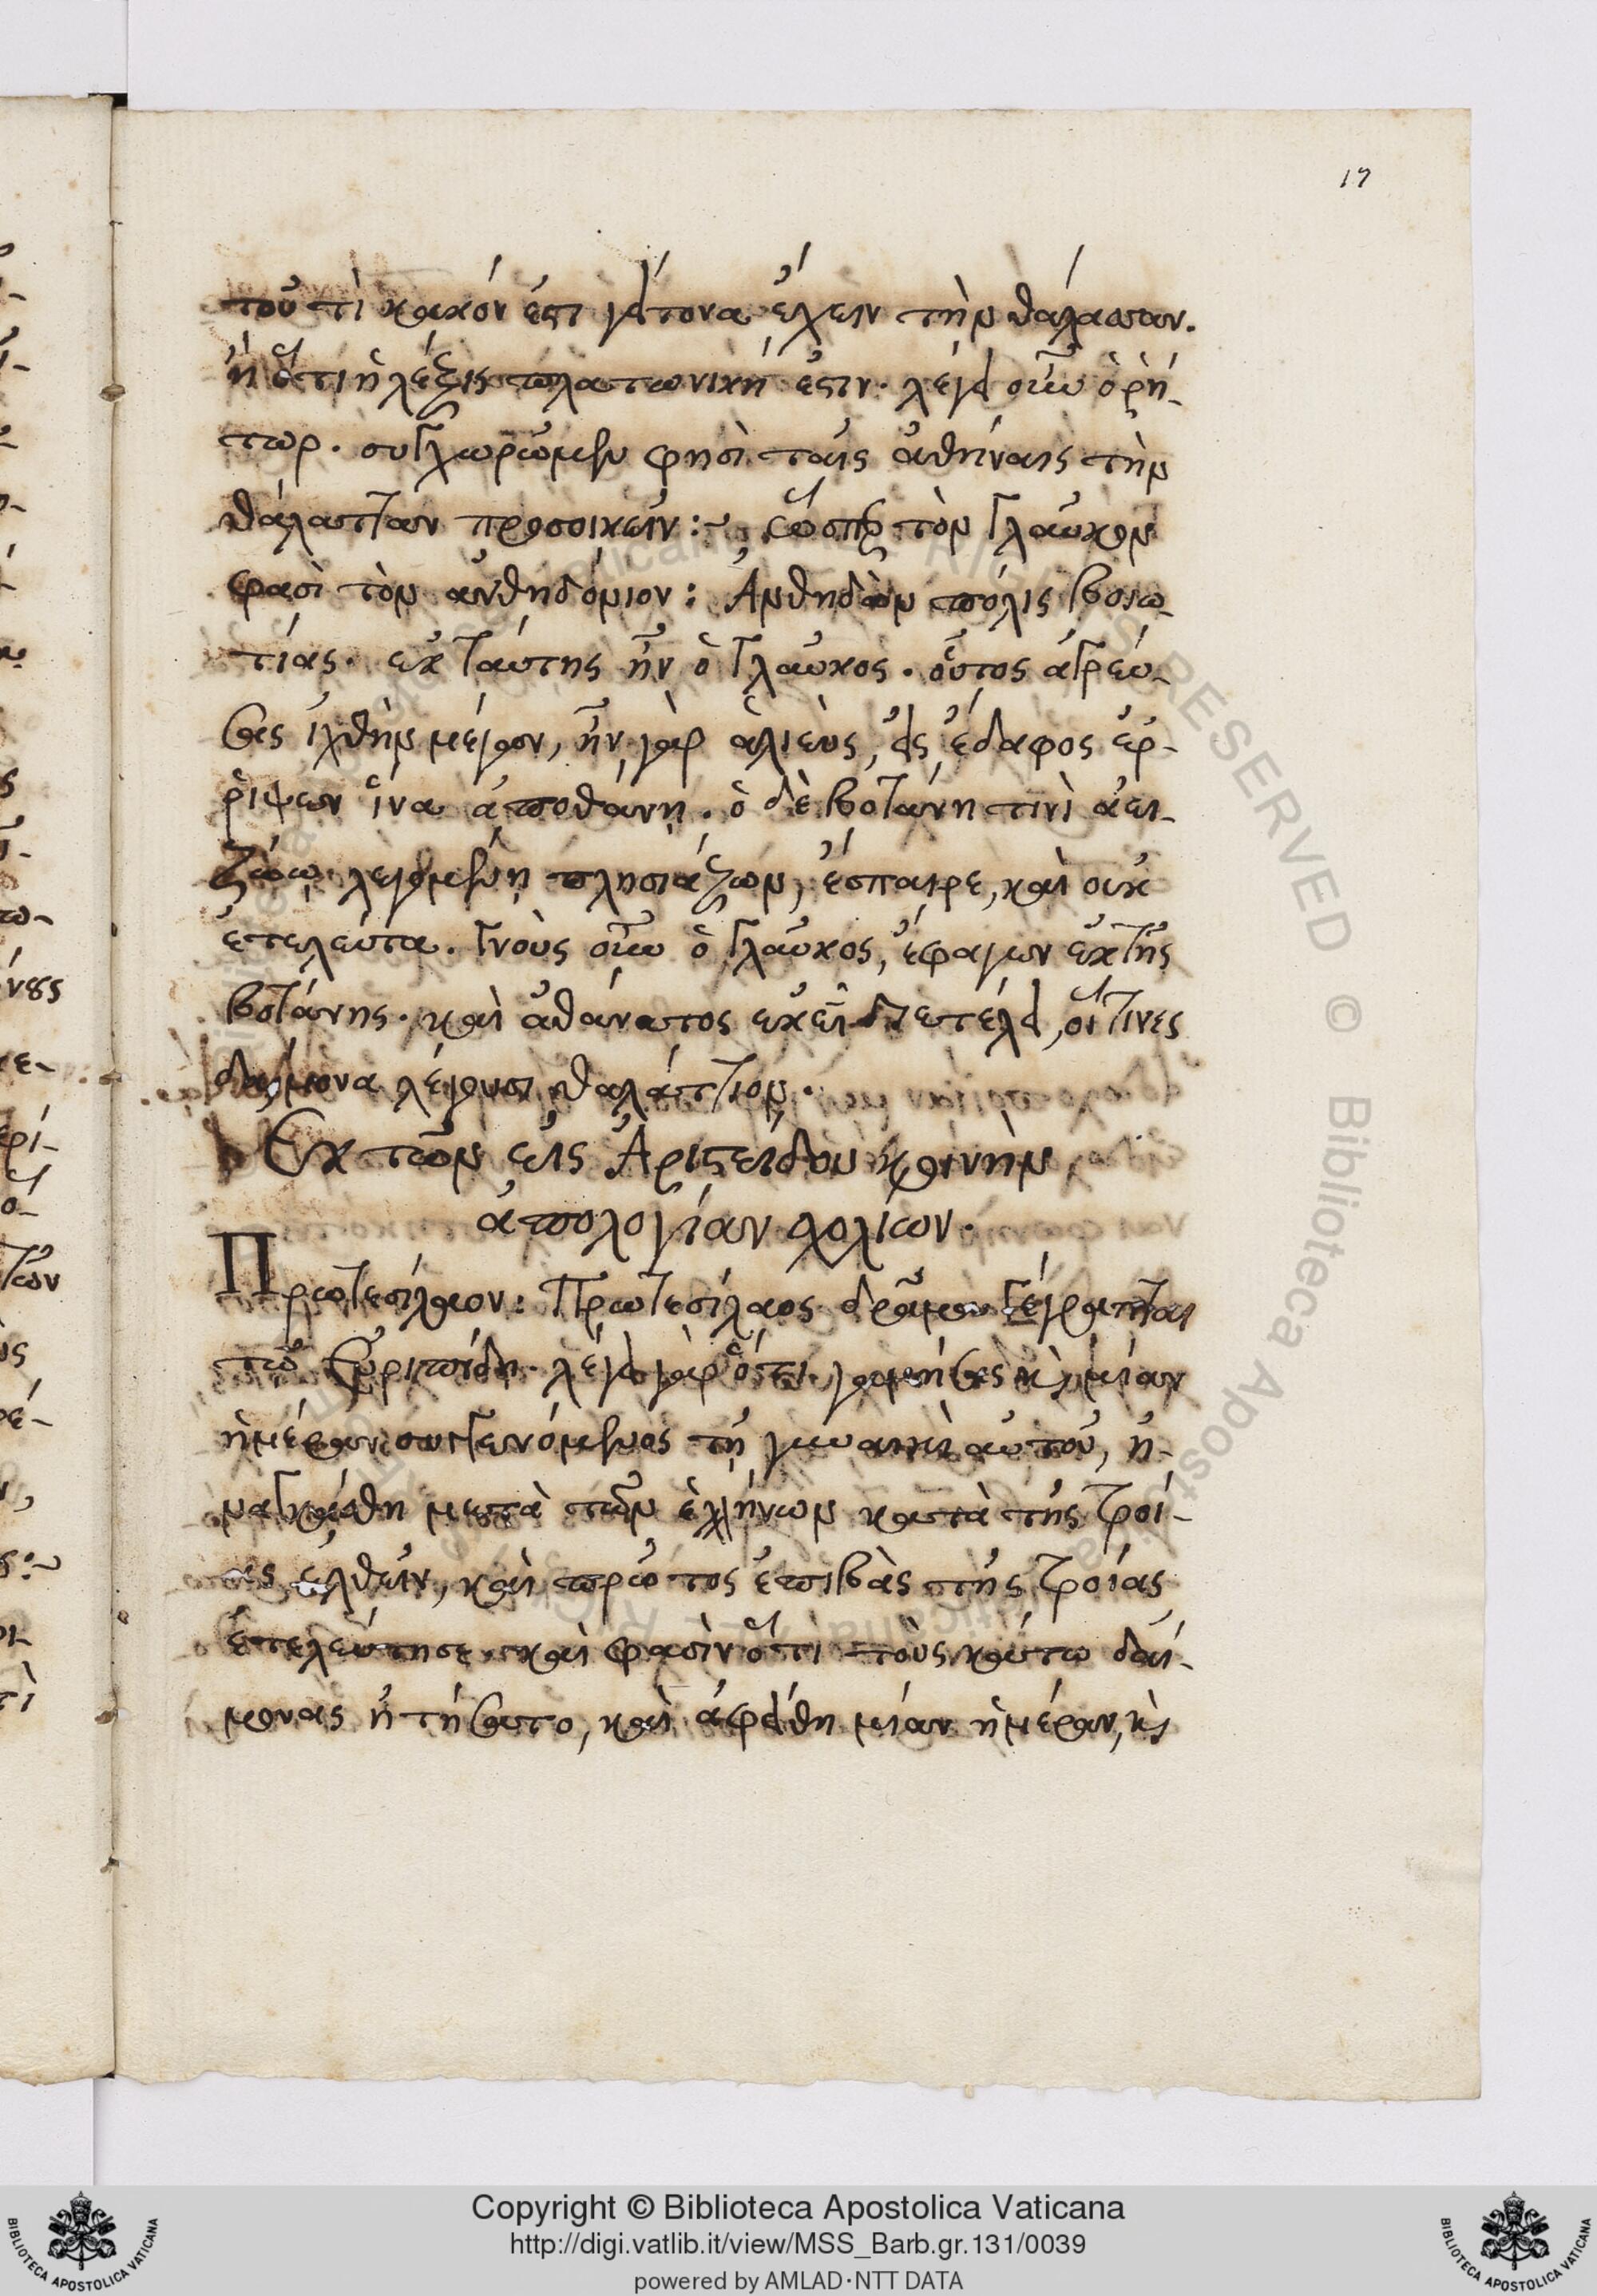 17
τοῦτι κακόν ἐστι γείτονα ἔχειν τὴν θάλασσαν.
ἢ ὅτι ἡ λέξις πλατωνική ἐστιν. λέγει οὖν ὁ ῥή-
τωρ. συγχωρῶμεν φησὶ ταῖς ἀθήναις τὴν
θάλατταν προσοικεῖν :~ ὥσπερ τὸν Γλαῦκον
φασὶ τὸν ἀνθηδόνιον : Ἀνθηδὼν πόλις βοιω-
τίας. ἐκ ταύτης ἦν ὁ Γλαῦκος. οὗτος ἀγρεύ-
σας ἰχθὺν μέγαν, ἦν γὰρ ἁλιεὺς, εἰς ἔδαφος ἔρ-
ῥιψεν ἵνα ἀποθάνῃ. ὁ δὲ βοτάνῃ τινὶ ἀει-
ζώῳ λεγομένῃ πλησιάζων, ἔσπαιρε, καὶ οὐκ
ἐτελεύτα. Γνοὺς οὖν ὁ Γλαῦκος, ἔφαγεν ἐκ τῆς
βοτάνης. καὶ ἀθάνατος ἐκεῖ διετέλει, οἵτινες
δαίμονα λέγουσι θαλάττιον.
Ἐκ τῶν εἰς Ἀριστείδου κοινὴν
ἀπολογίαν σχολίων.
Πρωτεσίλαον : Πρωτεσίλαος δρᾶμα Γέγραπται
τῷ Εὐριπίδῃ. λέγει γὰρ ὅτι γαμήσας καὶ μίαν
ἡμέραν συγγενόμενος τῇ γυναικὶ αὐτοῦ, ἠ-
ναγκάσθη μετὰ τῶν ἑλλήνων κατὰ τῆς τροί-
ας ἐλθεῖν, καὶ πρῶτος ἐπιβὰς τῆς τροίας
ἐτελεύτησε. καὶ φασὶν ὅτι τοὺς κάτω δαί-
μονας ᾐτήσατο, καὶ ἀφείθη μίαν ἡμέραν, καὶ
Copyright © Biblioteca Apostolica Vaticana
http://digi.vatlib.it/view/MSS_Barb.gr.131/0039
powered by AMLAD·NTT DATA